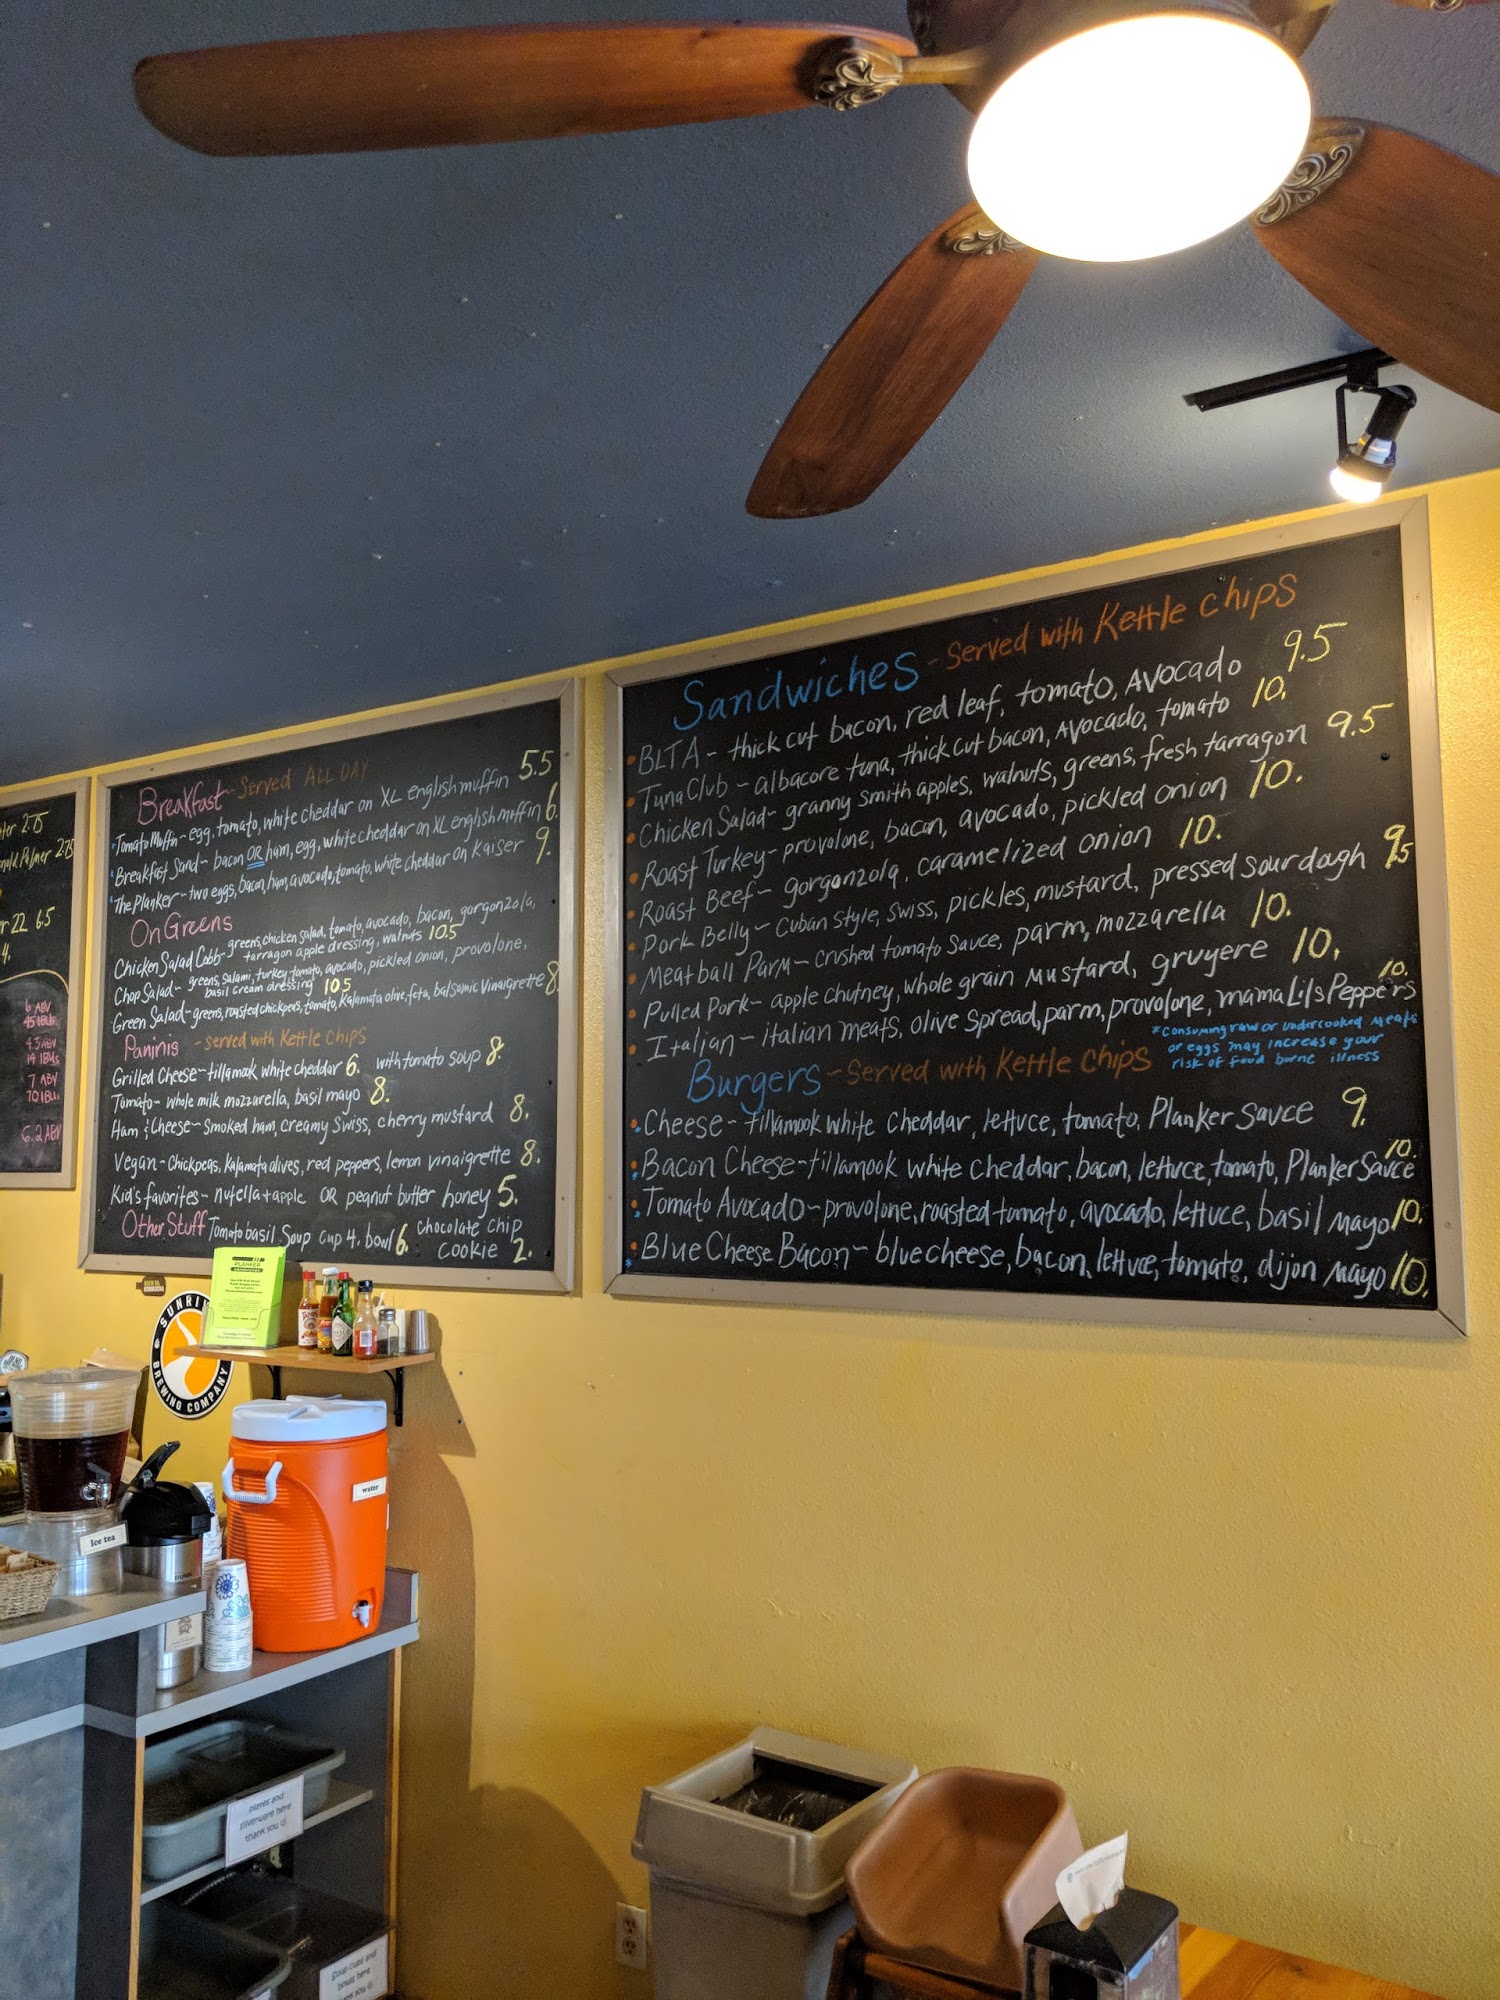 ter 2.75
nold Palmer 2.75
r 22 6.5
4.
6 ABV
45 IBUs
4.3 ABV
19 IBUs
7 ABV
70 IBUs
6.2 ABV
Breakfast - Served ALL DAY
Tomato Muffin - egg, tomato, white cheddar on XL english muffin 5.5
Breakfast Sand - bacon OR ham, egg, white cheddar on XL english muffin 6.
The Planker - two eggs, bacon, ham, avocado, tomato, white cheddar on Kaiser 9.
On Greens
Chicken Salad Cobb - greens, chicken salad, tomato, avocado, bacon, gorgonzola,
tarragon apple dressing, walnuts 10.5
Chop Salad - greens, salami, turkey, tomato, avocado, pickled onion, provolone,
basil cream dressing 10.5
Green Salad - greens, roasted chickpeas, tomato, Kalamata olive, feta, balsamic vinaigrette 8.
Paninis - served with Kettle Chips
Grilled Cheese - tillamook white cheddar 6. with tomato soup 8.
Tomato - whole milk mozzarella, basil mayo 8.
Ham & Cheese - Smoked ham, creamy Swiss, cherry mustard 8.
Vegan - Chickpeas, Kalamata olives, red peppers, lemon vinaigrette 8.
Kid's favorites - nutella + apple OR peanut butter honey 5.
Other Stuff Tomato basil Soup cup 4. bowl 6. chocolate chip
cookie 2.
Sandwiches - Served with Kettle Chips
BLTA - thick cut bacon, red leaf, tomato, Avocado 9.5
Tuna Club - albacore tuna, thick cut bacon, Avocado, tomato 10.
Chicken Salad - granny smith apples, walnuts, greens, fresh tarragon 9.5
Roast Turkey - provolone, bacon, avocado, pickled onion 10.
Roast Beef - gorgonzola, caramelized onion 10.
Pork Belly - Cuban style, swiss, pickles, mustard, pressed sourdough 9.5
Meatball Parm - crushed tomato sauce, parm, mozzarella 10.
Pulled Pork - apple chutney, whole grain mustard, gruyere 10.
Italian - italian meats, olive spread, parm, provolone, mama Lil's Peppers 10.
*Consuming raw or undercooked meats
or eggs may increase your
risk of food borne illness
Burgers - Served with Kettle Chips
Cheese - tillamook white cheddar, lettuce, tomato, Planker Sauce 9.
Bacon Cheese - tillamook white cheddar, bacon, lettuce, tomato, Planker Sauce 10.
Tomato Avocado - provolone, roasted tomato, avocado, lettuce, basil mayo 10.
Blue Cheese Bacon - blue cheese, bacon, lettuce, tomato, dijon mayo 10.
PLANKER
KOMBUCHA
SUNRI
BREWING COMPANY
water
Ice tea
plates and
silverware here
thank you
soup cups and
bowls here
thank you